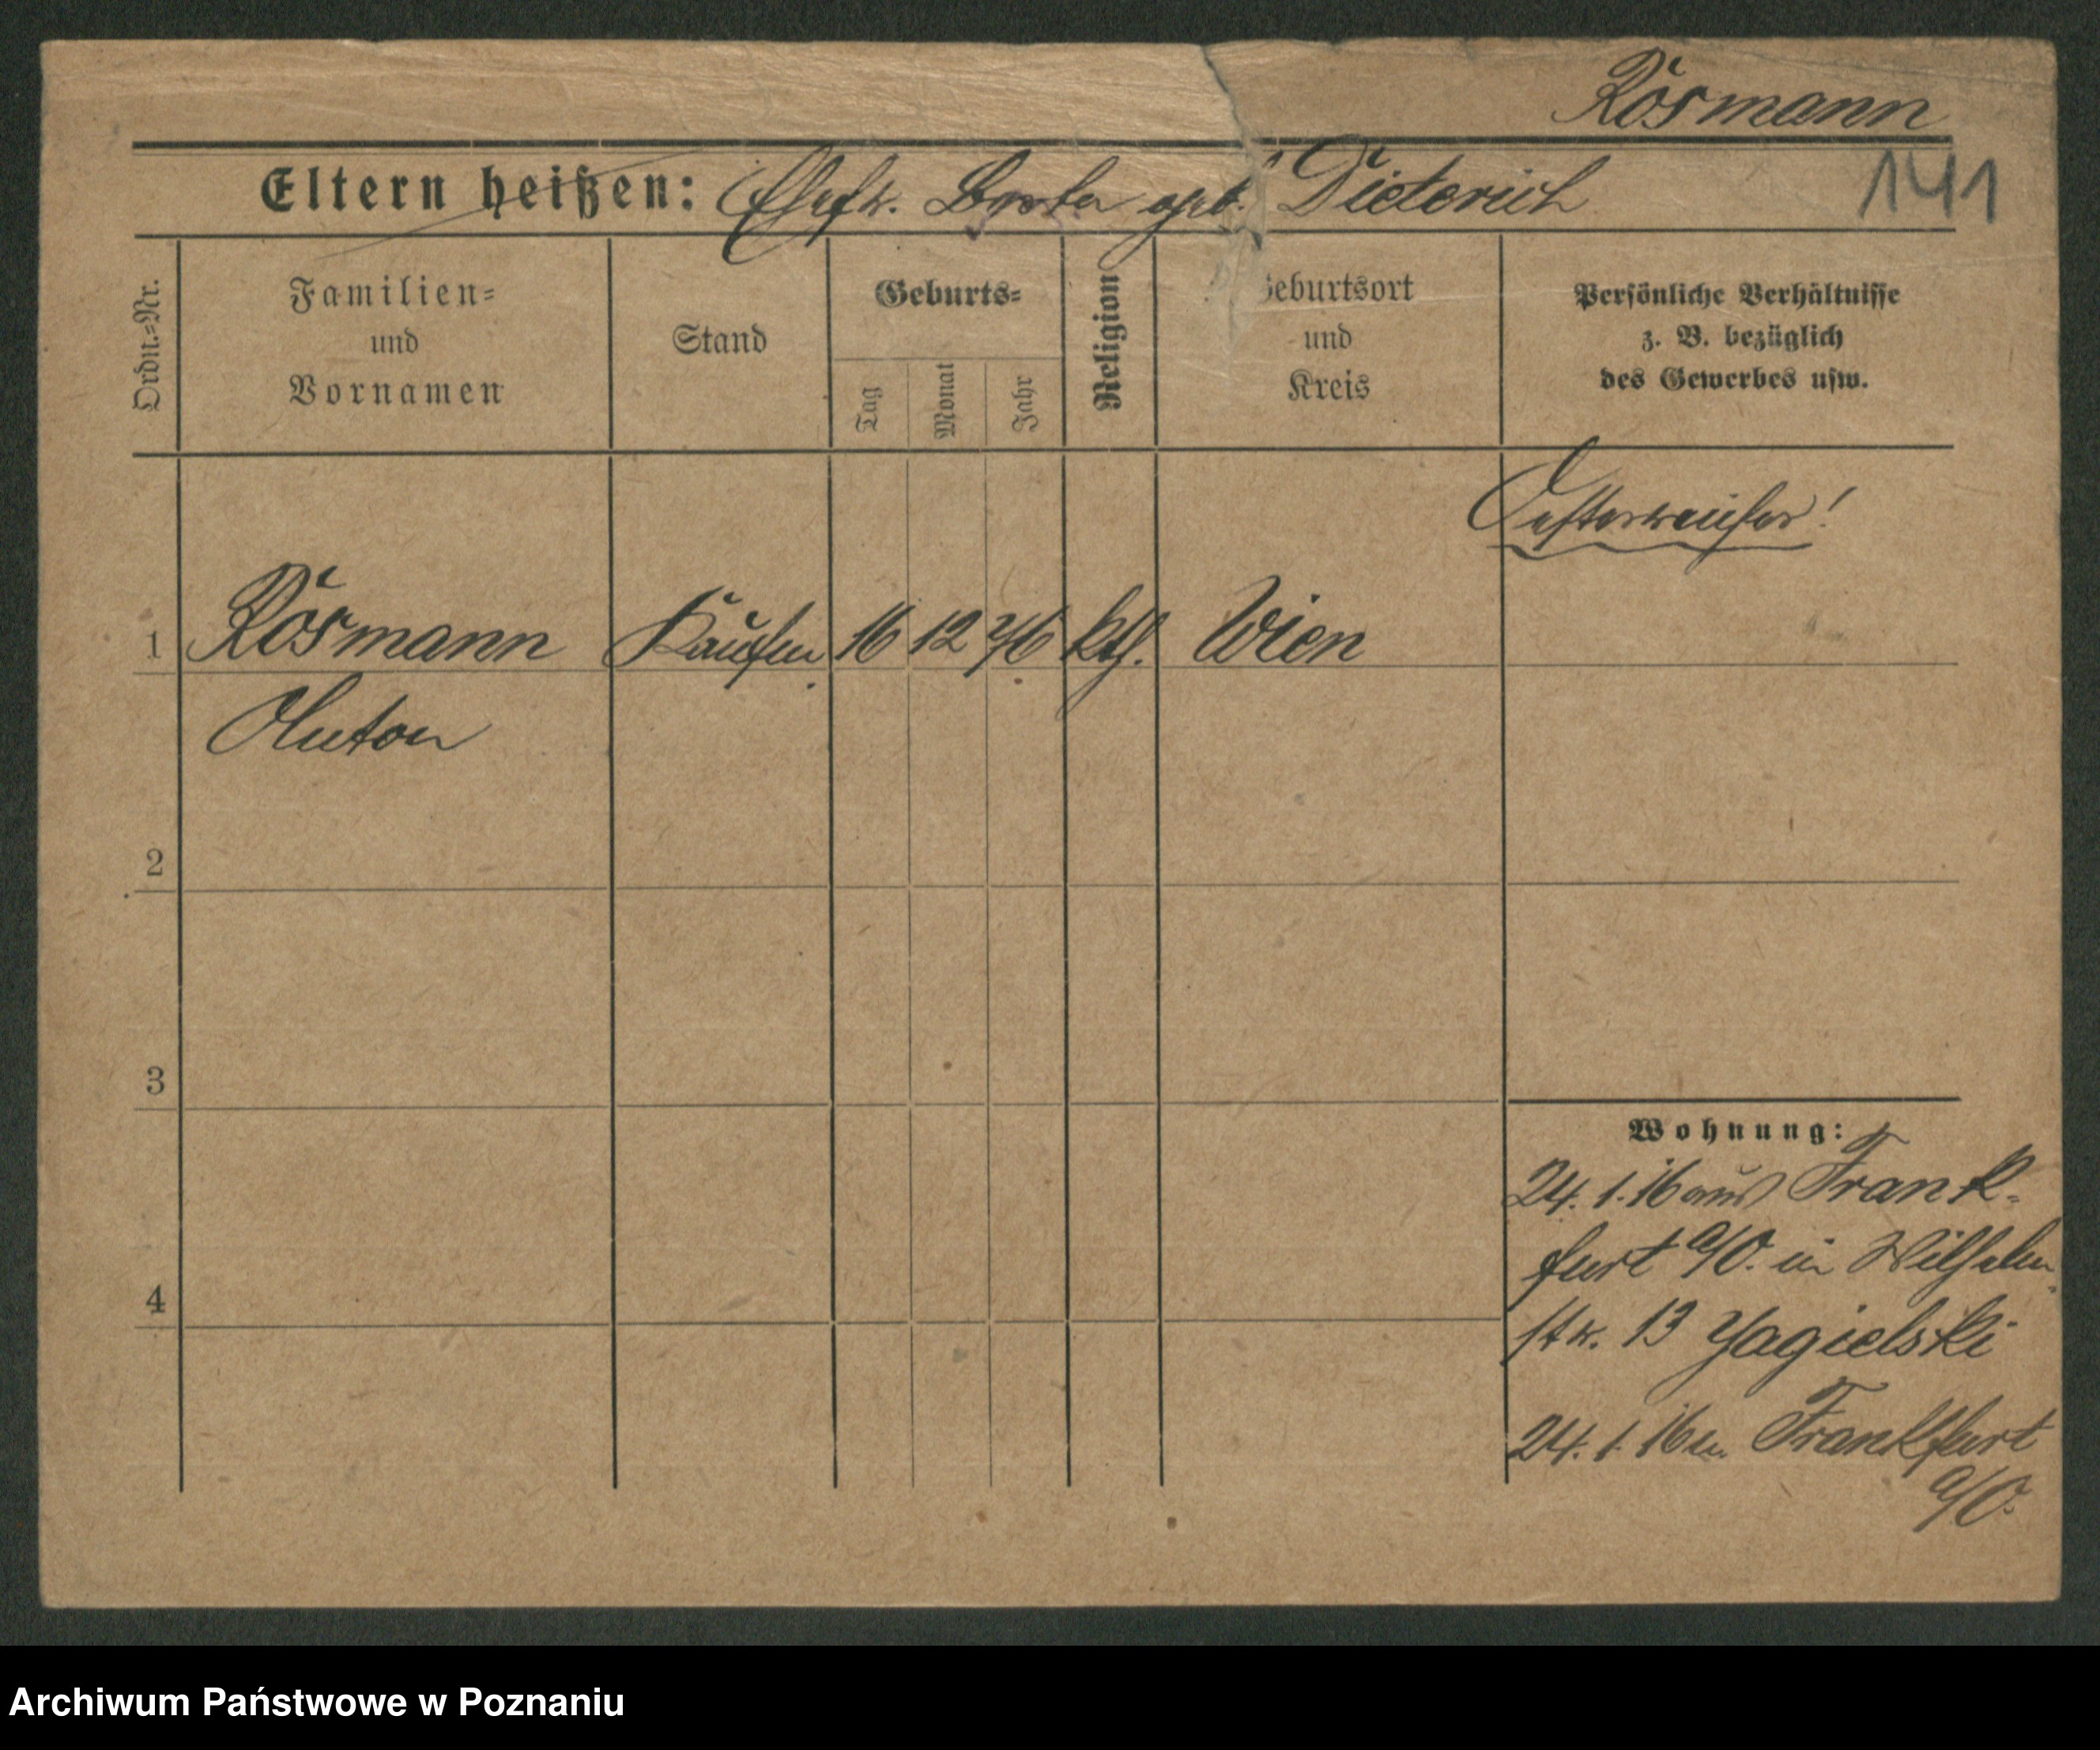 Rösmann
141
Eltern heißen: Ehefr. Berta geb. Dieterich
Ordn.=Nr.
Familien=
und
Vornamen
Stand
Geburts=
Tag
Monat
Jahr
Religion
Geburtsort
und
Kreis
Persönliche Verhältnisse
z. B. bezüglich
des Gewerbes usw.
Oesterreicher!
1 Rösmann Kaufm. 16 12 76 kth. Wien
Anton
2
3
4
Wohnung:
24. 1. 16 aus Frank-
furt a/O. in Wilhelm
str. 13 Jagielski
24. 1. 16 n. Frankfurt
a/O.
Archiwum Państwowe w Poznaniu